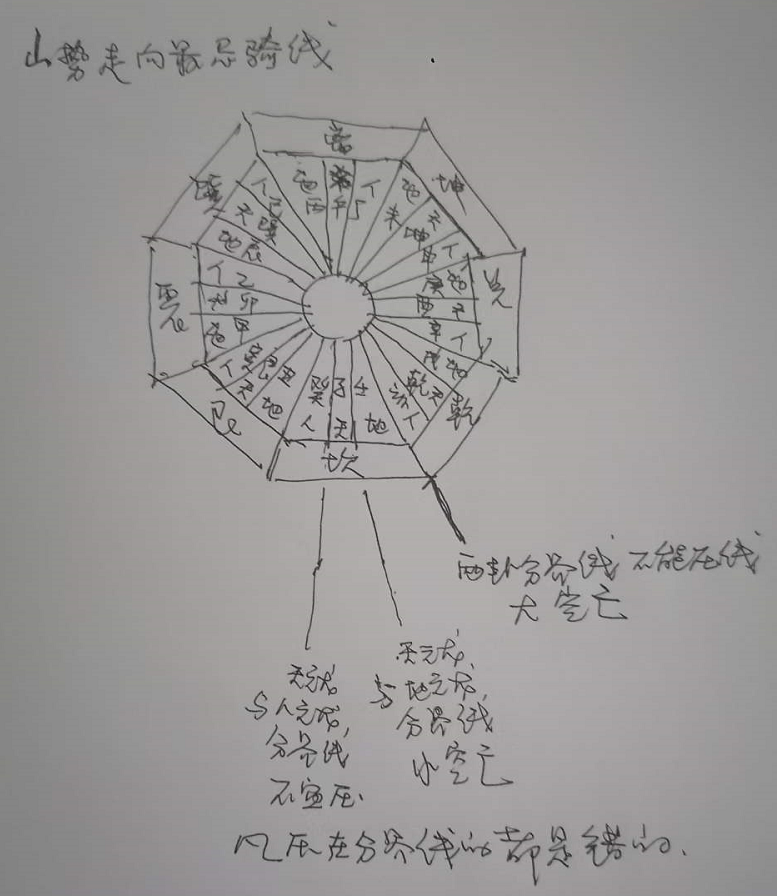 山势走向最忌骑线
离
坤
兑
乾
坎
艮
震
巽
地丙
天午
人丁
地未
天坤
人申
地庚
天酉
人辛
地戌
天乾
人亥
地壬
天子
人癸
地丑
天艮
人寅
地甲
天卯
人乙
地辰
天巽
人巳
两卦分界线 不能压线
大空亡
天元龙
与人元龙
分界线
不宜压.
天元龙,
与地元龙,
分界线
小空亡
凡压在分界线的都是错的.